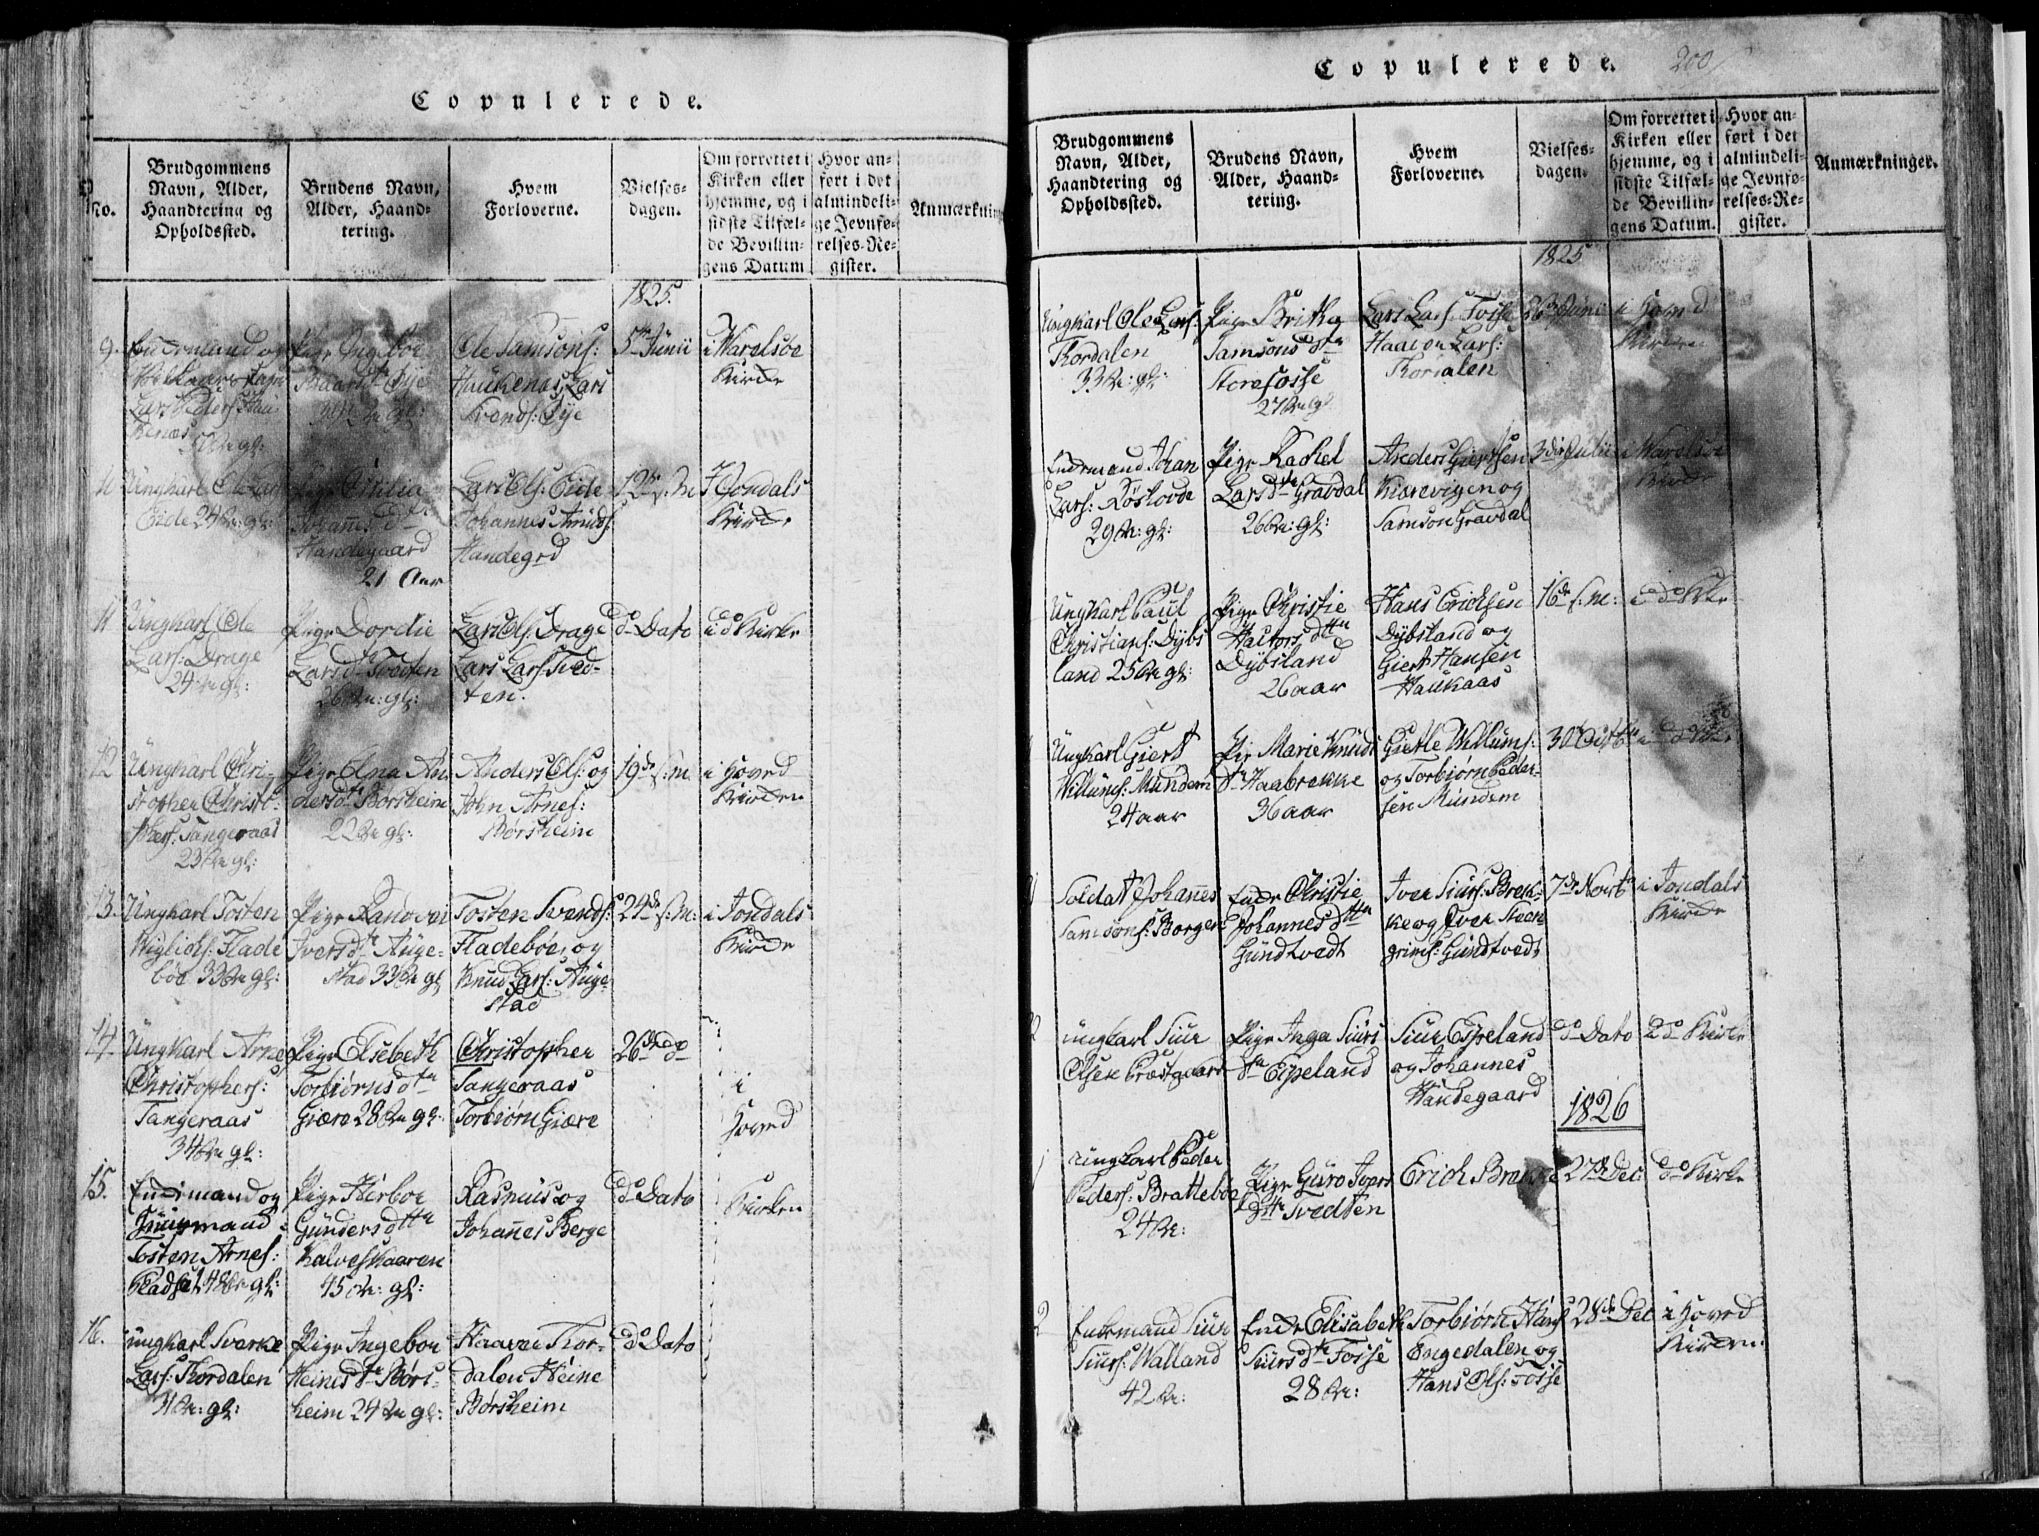 Copulerede.
No.
Brudgommens
Navn, Alder,
Haandtering og
Opholdssted.
Brudens Navn,
Alder, Haand-
tering.
Hvem
Forloverne.
Vielses-
dagen.
Om forrettet i
Kirken eller
hjemme, og i
sidste Tilfæl-
de Bevillin-
gens Datum
Hvor an-
ført i det
almindeli-
ge Jevnfø-
relses-Re-
gister.
Anmærkning
1825.
9.
Lars Peders:
Pige Ingeboe
Ole Samsons:
Haukenæs Lars
Svends: Øye
5te Junii
i Warelsøe
Kirke
Ungkarl Ole Lars:
Eide 24 Ar: gl:
Pige Cicilia
Johannes dtr
Handegaard
21 Aar
Lars Ols: Eide
Johannes Amuds:
Handegrd
12te s: M
I Jondals
Kirke
11
Ungkarl Ole
Lars: Drage
24 Ar gl:
Pige Dordie
Lars dtr Tvedten
26 Ar: gl:
Lars Ols: Drage
Lars Lars: Tved-
ten.
do Dato
i do Kirke
12
Ungkarl Chri-
stopher Christ-
phers: Tangeraas
23 Ar gl:
Pige Elna An-
ders dtr Børsheim
22 Ar gl:
Anders Ols: og
John Arnes:
Børsheim
19de s: M
i Hoved
Kirken
13.
Ungkarl Tosten
Wiglichs: Flade
bøe 33 Ar gl:
Pige Ranovei
Ivers dtr Auge-
stad 33 Ar gl
Tosten Svends:
Fladebøe og
Knud Lars: Auge-
stad
24de s: M:
i Jondals
Kirke
14.
Ungkarl Arne
Christophers:
Tangeraas
34 Ar gl:
Pige Elsebeth
Torbiørns dtr
Giære 28 Ar gl:
Christopher
Tangeraas
Torbiørn Giære
26de do
i
Hoved
Kirken
15.
Enkemand og
Tosten Arnes:
48 Ar gl:
Pige Herboe
Gunders dtr
Kalveskaaren
45 Ar: gl:
Rasmus og
Johannes Berge
do Dato
16.
Ungkarl Sverke
Lars: Thordalen
Ar: gl:
Pige Ingebor
Heines dtr Børs-
heim 24 Ar gl:
Haavar Thor-
dalen Heine
Børsheim
do Dato
Copulerede.
200
Brudgommens
Navn, Alder,
Haandtering og
Opholdssted.
Brudens Navn,
Alder, Haand-
tering.
Hvem
Forloverne.
Vielses-
dagen.
Om forrettet i
Kirken eller
hjemme, og i
sidste Tilfæl-
de Bevillin-
gens Datum.
Hvor an-
ført i det
almindeli-
ge Jevnfø-
relses-Re-
gister.
Anmærkninger.
1825
Ungkarl Ole Lars:
Thordalen
33 Ar: gl:
Pige Britha
Samsons dtr
Storefosse
27 Ar gl
Lars Lars: Fosse
Haacon Lars:
Thordalen
26de Junii
i Hoved
Kirken
Enkemand Johan
Lars:
29 Ar: gl:
Pige Rachel
Lars dtr Gravdal
26 Ar: gl:
Anders Giertsen
Kiærevigen og
Samson Gravdal
3die Julii
i Warelsøe
Kirke
Ungkarl Paul
Christians: Dybs
land 25 Ar gl:
Pige Christie
Hactors dtr
Dybsland
26 aar
Hans Ericksen
Dybsland og
Giert Hansen
Haukaas
16de s: M:
i do Kke
Ungkarl Giert
Willums: Mundem
24 aar
Pige Marie Knuds
dr Haabrekke
36 aar
Gietle Willums:
og Torbiørn Peder-
sen Mundem
30te Octbr
i do Kke
Soldat Johannes
Samsons: Borgen
Enke Christie
Johannes dtr
Gundtvedt
Iver Siurs: Brek-
ke og Iver Steen-
grims: Gundtvedt
7de Novbr
i Jondals
Kirke
Ungkarl Siur
Olsen Præstgaard
Pige Inga Siurs
dtr Espeland
Siur Espeland
og Johannes
Handegaard
do Dato
do Kirke
1826
1
Ungkarl Peder
Peders: Brattebøe
24 Ar:
Pige Guro Ivers
dtr Tvedten
Erich
27de Dec:
do Kirke
2
Enkemand Siur
Siurs: Walland
42 Ar:
Enke Elisabeth
Siurs dtr Fosse
28 Ar:
Torbiørn Hans:
Engedalen og
Hans Ols: Fosse
28de Dec
i Hoved
Kirken: